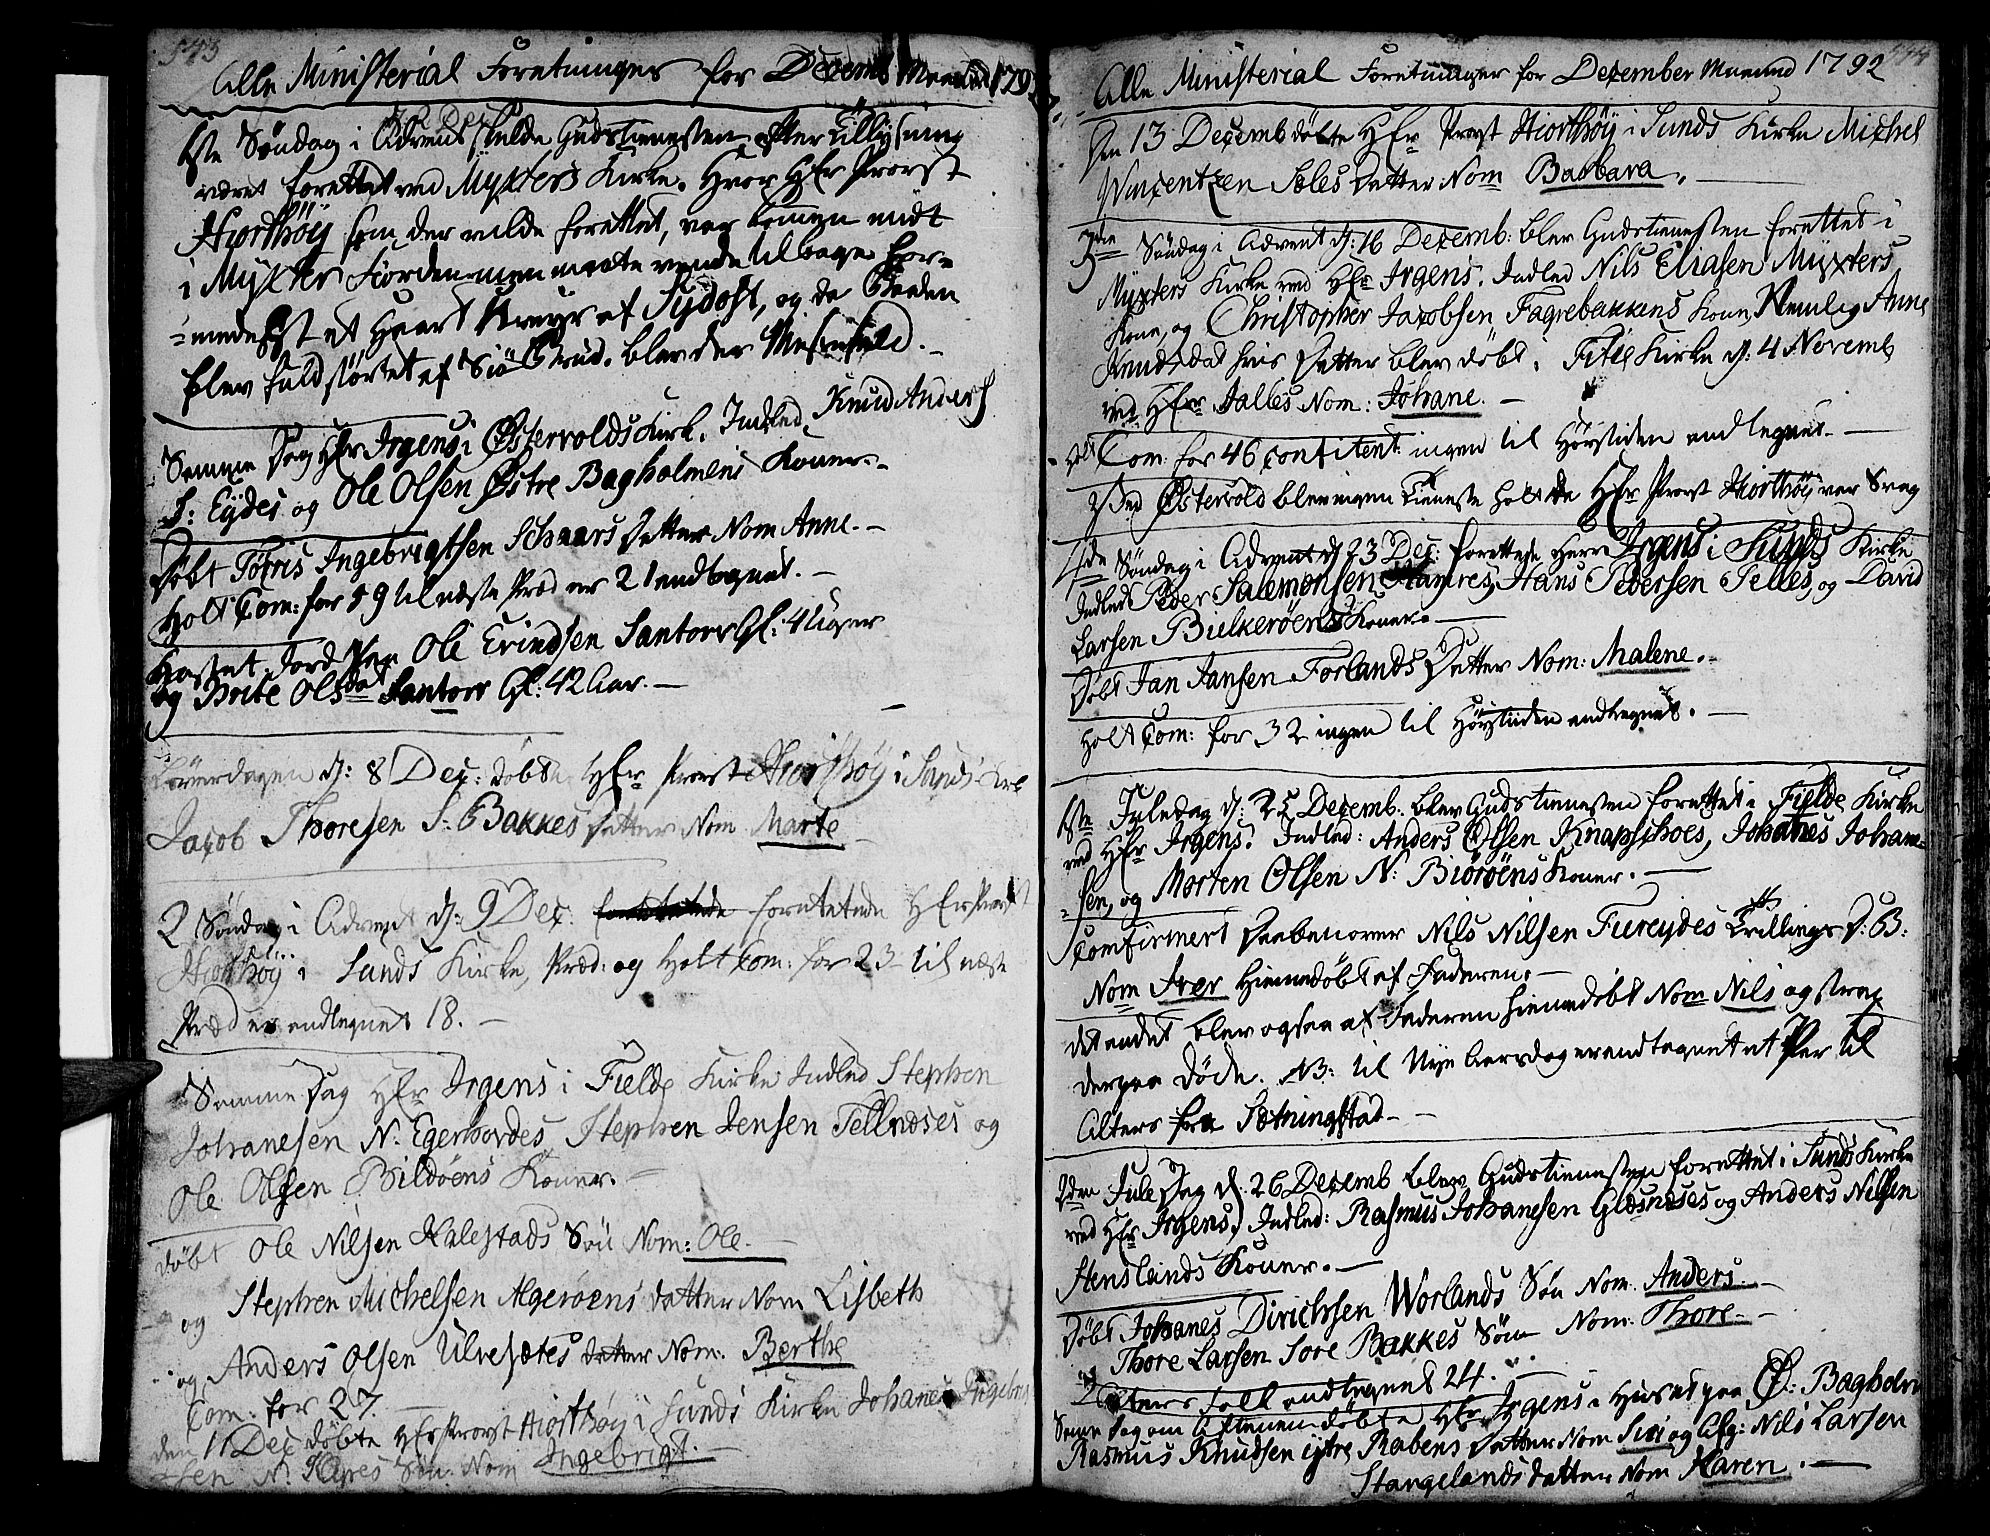 543
Alle Ministerial Forretninger for Decemb Maaned 179
1ste Søndag i Advent skulde Gudstienesten efter Tillysning
været forrettet ved Myxters Kirke. Hvor HEr Provst
Hiorthöÿ som der vilde forrettet, var kommen midt
i Myxter Fiorden men maate vende tilbage for-
=medelst et haart Kruys af Sydost, og da Baaden
blev fuldstörtet af Siö Brud. blev der Messefald.
Samme Dag HEr Irgens i Østervolds Kirk. Indled. Knud Anders
S: Eÿdes og Ole Olsen Østre Bagholmens Koner.-
Døbt Tøris Ingebrigtsen Schaars Datter Nom Anne.-
Holt Com: for 59 til næste Præd er 21 andtegnet.-
Kastet Jord paa Ole Erindsen Santorr Gl: 4 Uger
og Brite Olsdat Santorr Gl: 42 Aar.-
Löverdagen d: 8 Dec: døbte HEr Provst Hiorthöÿ i Sunds Kirk
Jacob Thoresen S: Bakkes Datter Nom Marte
2 Søndag i Advent d: 9 Dec: forrettede HEr Provst
Hiorthöÿ i Sunds Kirke, Præd: og Holt Com: for 23 til næste
Præd er andtegnet 18.-
Samme Dag HEr Irgens i Fielde Kirke Indled Stephen
Johanesen N: Egerhordes, Stephen Jensen Tellnæses og
Ole Olsen Bildöens Koner.-
døbt Ole Nilsen Kalestads Sön Nom: Ole.
og Stephen Michelsen Algeröens datter Nom Lisbeth
og Anders Olsen Ulvesætes datter Nom: Berthe
Com: for 27.
den 11 Dec døbte HEr Provst Hiorthöÿ i Sunds Kirke Johanes Ingebrig
sen N: Sön Nom Ingebrigt.-
544
Alle Ministerial Forretninger for December Maaned 1792
Den 13 Decemb døbte HEr Provst Hiorthöÿ i Sunds Kirke Michel
Vincentzen Soles Datter Nom Barbara.
3die Søndag i Advent d: 16 Decemb: blev Gudstienesten forrettet i
Myxters Kirke ved HEr Irgens. Indled Nils Eliasen Myxters
Kone, og Christopher Jacobsen Fagrebakkens Kone, Nemlig Anne
Knudsdat hvis Datter blev døbt i Titel Kirke d: 4 Novemb
ved HEr Jalles Nom: Johane.-
Holt Com: for 46 confitent: ingen til Höystiden andtegnet.-
Ved Østervold blev ingen Tieneste holt da HEr Provst Hiorthöÿ var Svag
4de Søndag i Advent d: 23 Dec: forrettede Herr Irgens i Sunds Kirke
Indled Peder Salemonsen Hamres, Hans Pedersen Telles, og David
Larsen Bulkeröens Koner.-
Døbt Jan Jansen Forlands Datter Nom: Malene.-
Holt Com: for 32 ingen til Höystiden andtegnet.-
1ste Juledag d: 25 Decemb: blev Gudstienesten forrettet i Fielde Kirke
ved HEr Irgens. Indled: Anders Olsen Knapschoes, Johanes Johane-
=sen, og Morten Olsen N: Biöröens Koner.-
Confirmert Daaben over Nils Nilsen Tureydes Tvillings D: B:
Nom Iver Hiemedøbt af Faderen.-
det andet blev ogsaa af Faderen hiemedøbt Nom Nils og strax
derpaa døde. NB: til Nye Aarsdag er andtegnet et Par til
Alters fra Sætningstad.-
2den Jule Dag d: 26 Decemb blev Gudstienesten forrettet i Sunds Kirke
ved HEr Irgens, Indled: Rasmus Johanesen Glæsnæses og Anders Nilsen
Stenslands Koner.-
Døbt Johanes Dirichsen Worlands Sön Nom: Anders.-
og Thore Larsen Sore Bakkes Sön Nom: Thore.-
Alters Folk andtegnet 24.-
Samme Dag om Aftenen døbte HEr Irgens i Huset paa Ø: Bagholm
Rasmus Knudsen ÿtre Rabens Datter Nom Siri og Afg: Nils Larsen
Stangelands datter Nom Karen.-